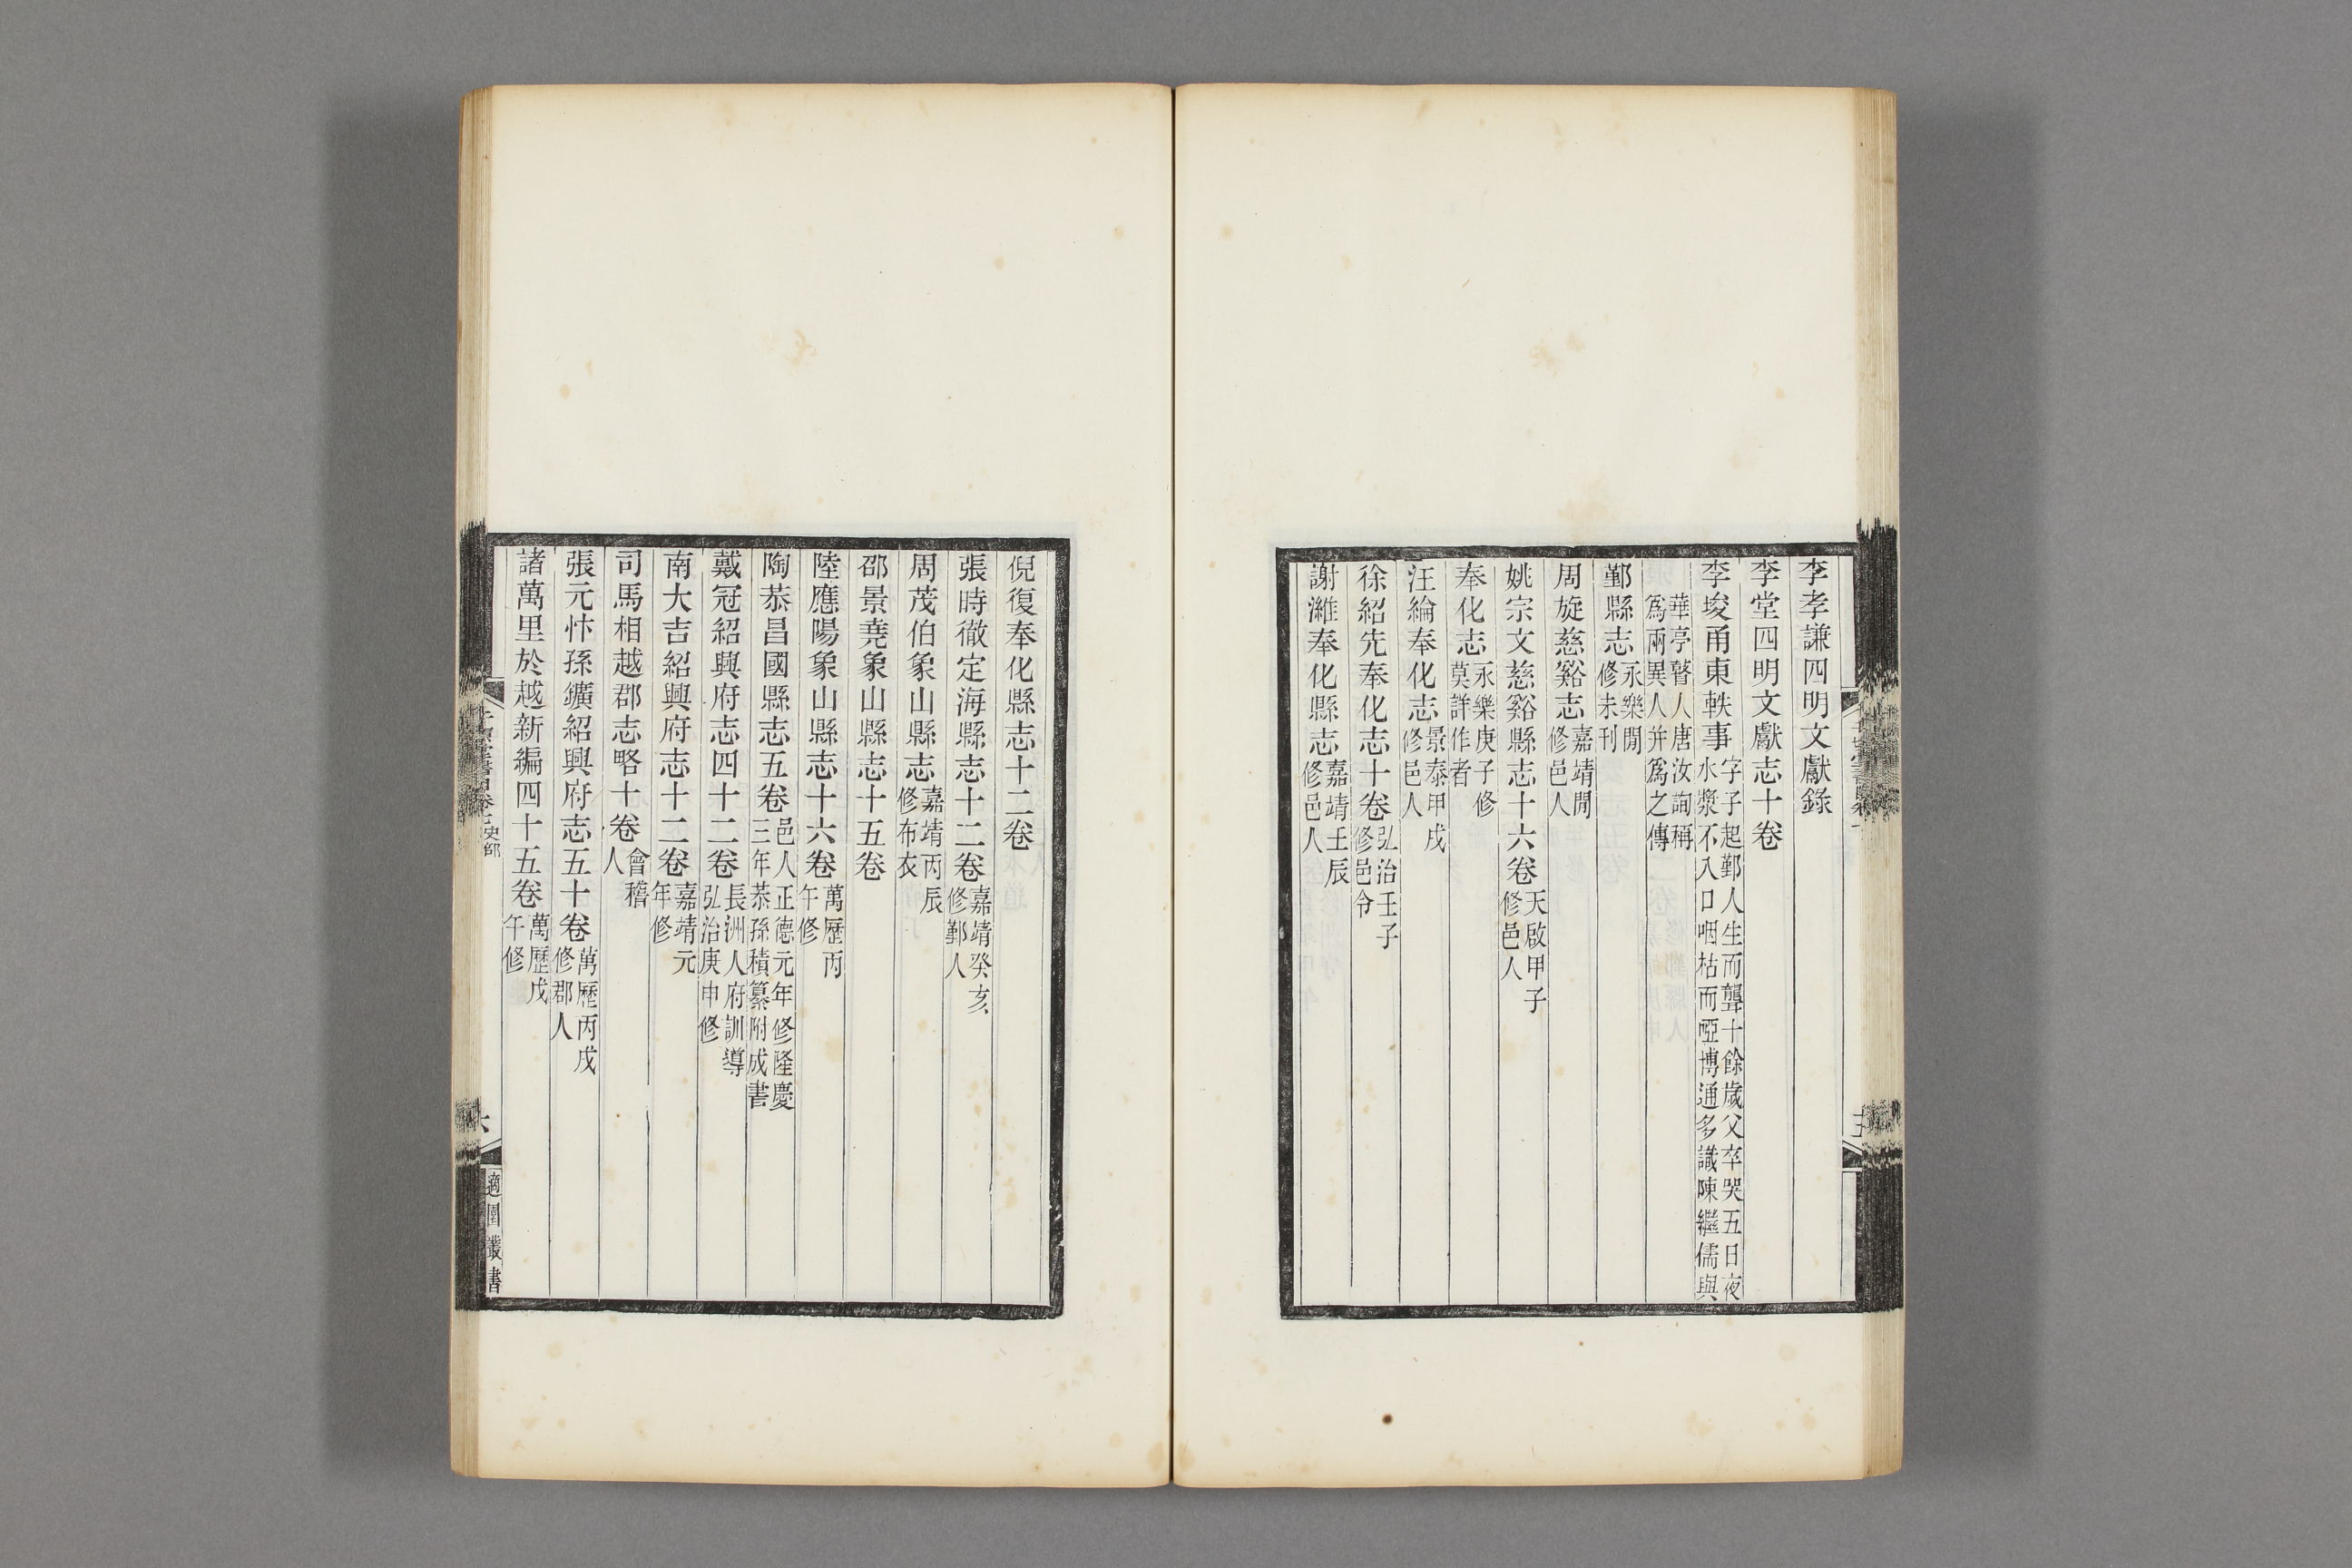 李孝謙四明文獻錄
李堂四明文獻志十卷
李埈甬東軼事字子起鄞人生而聾十餘歲父卒哭五日夜水漿不入口咽枯而啞博通多識陳繼儒與
華亭瞽人唐汝詢稱爲兩異人并爲之傳
鄞縣志永樂閒修未刊
周旋慈谿志嘉靖閒修邑人
姚宗文慈谿縣志十六卷天啟甲子修邑人
奉化志永樂庚子修莫詳作者
汪綸奉化志景泰甲戌修邑人
徐紹先奉化志十卷弘治壬子修邑令
謝濰奉化縣志嘉靖壬辰修邑人
倪復奉化縣志十二卷
張時徹定海縣志十二卷嘉靖癸亥修鄞人
周茂伯象山縣志嘉靖丙辰修布衣
邵景堯象山縣志十五卷
陸應陽象山縣志十六卷萬歷丙午修
陶恭昌國縣志五卷邑人正德元年修隆慶三年恭孫積纂附成書
戴冠紹興府志四十二卷長洲人府訓導弘治庚申修
南大吉紹興府志十二卷嘉靖元年修
司馬相越郡志略十卷會稽人
張元忭孫鑛紹興府志五十卷萬歷丙戌修郡人
諸萬里於越新編四十五卷萬歷戊午修
史部
六
適園叢書